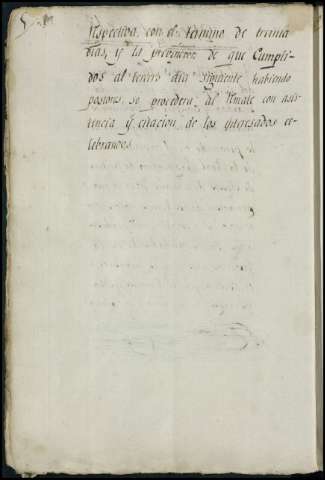 respectiva, con el termino de treinta
dias, y la prevencion de que Cumpli-
dos al tercero dia siguiente habiendo
postores, se procederá al Rmate con asis-
tencia y citacion de los ynteresados ce-
lebrandose